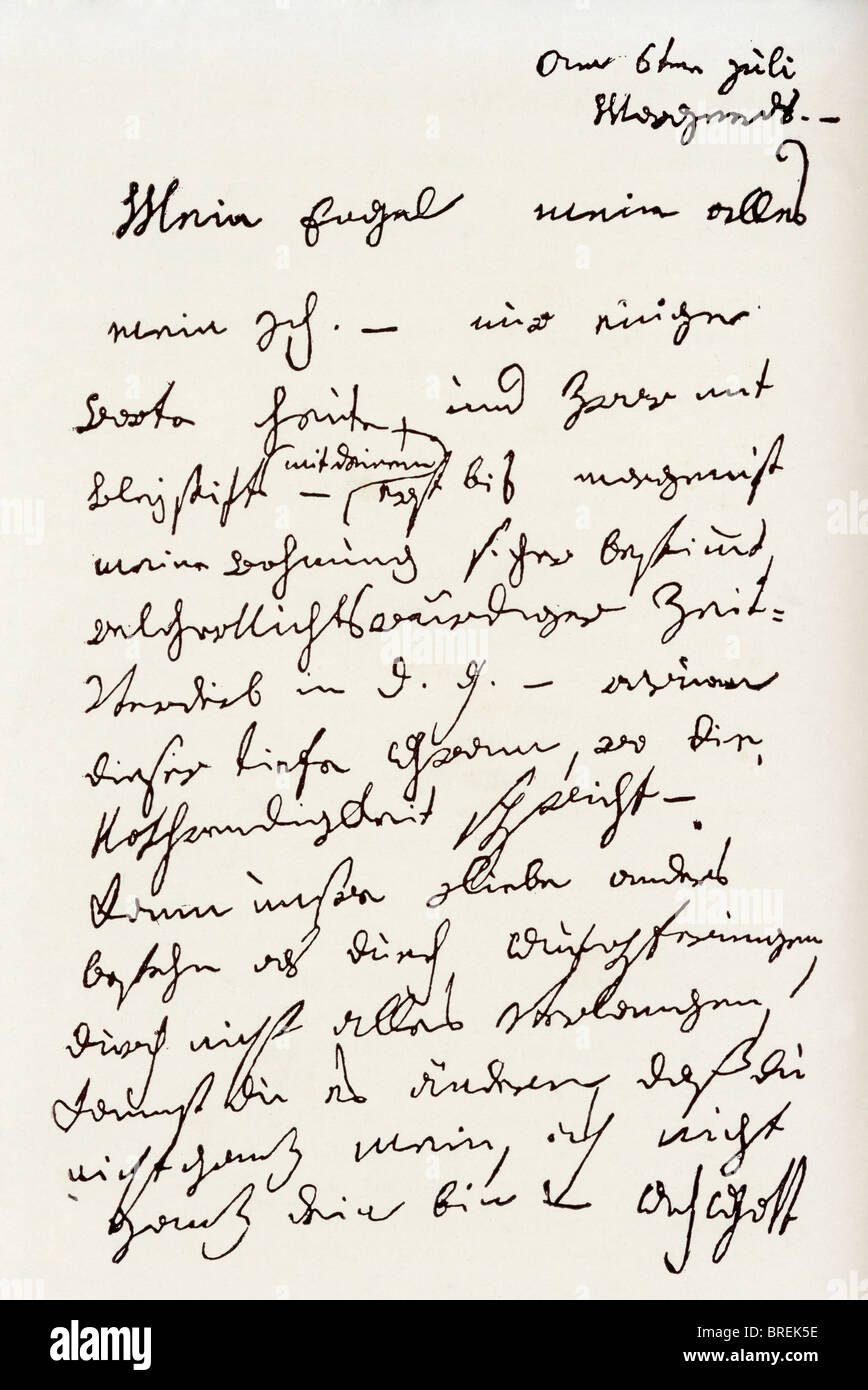 am 6ten juli
Morgends. –
Mein Engel mein alles
mein Ich. – nur einige
worte heute, und zwar mit
Bleystift – mit deinem
erst bis morgen ist
meine wohnung sicher bestimmt,
welcher Nichtswürdiger Zeit=
Verderb in d. g. – warum
dieser tiefe Gram, wo die
Nothwendigkeit spricht –
Kann unsre Liebe anders
bestehn als durch Aufopferungen,
durch nicht alles verlangen,
kannst du es ändern, daß du
nicht ganz mein, ich nicht
ganz dein bin – Ach Gott
alamy
Image ID: BREK5E
www.alamy.com